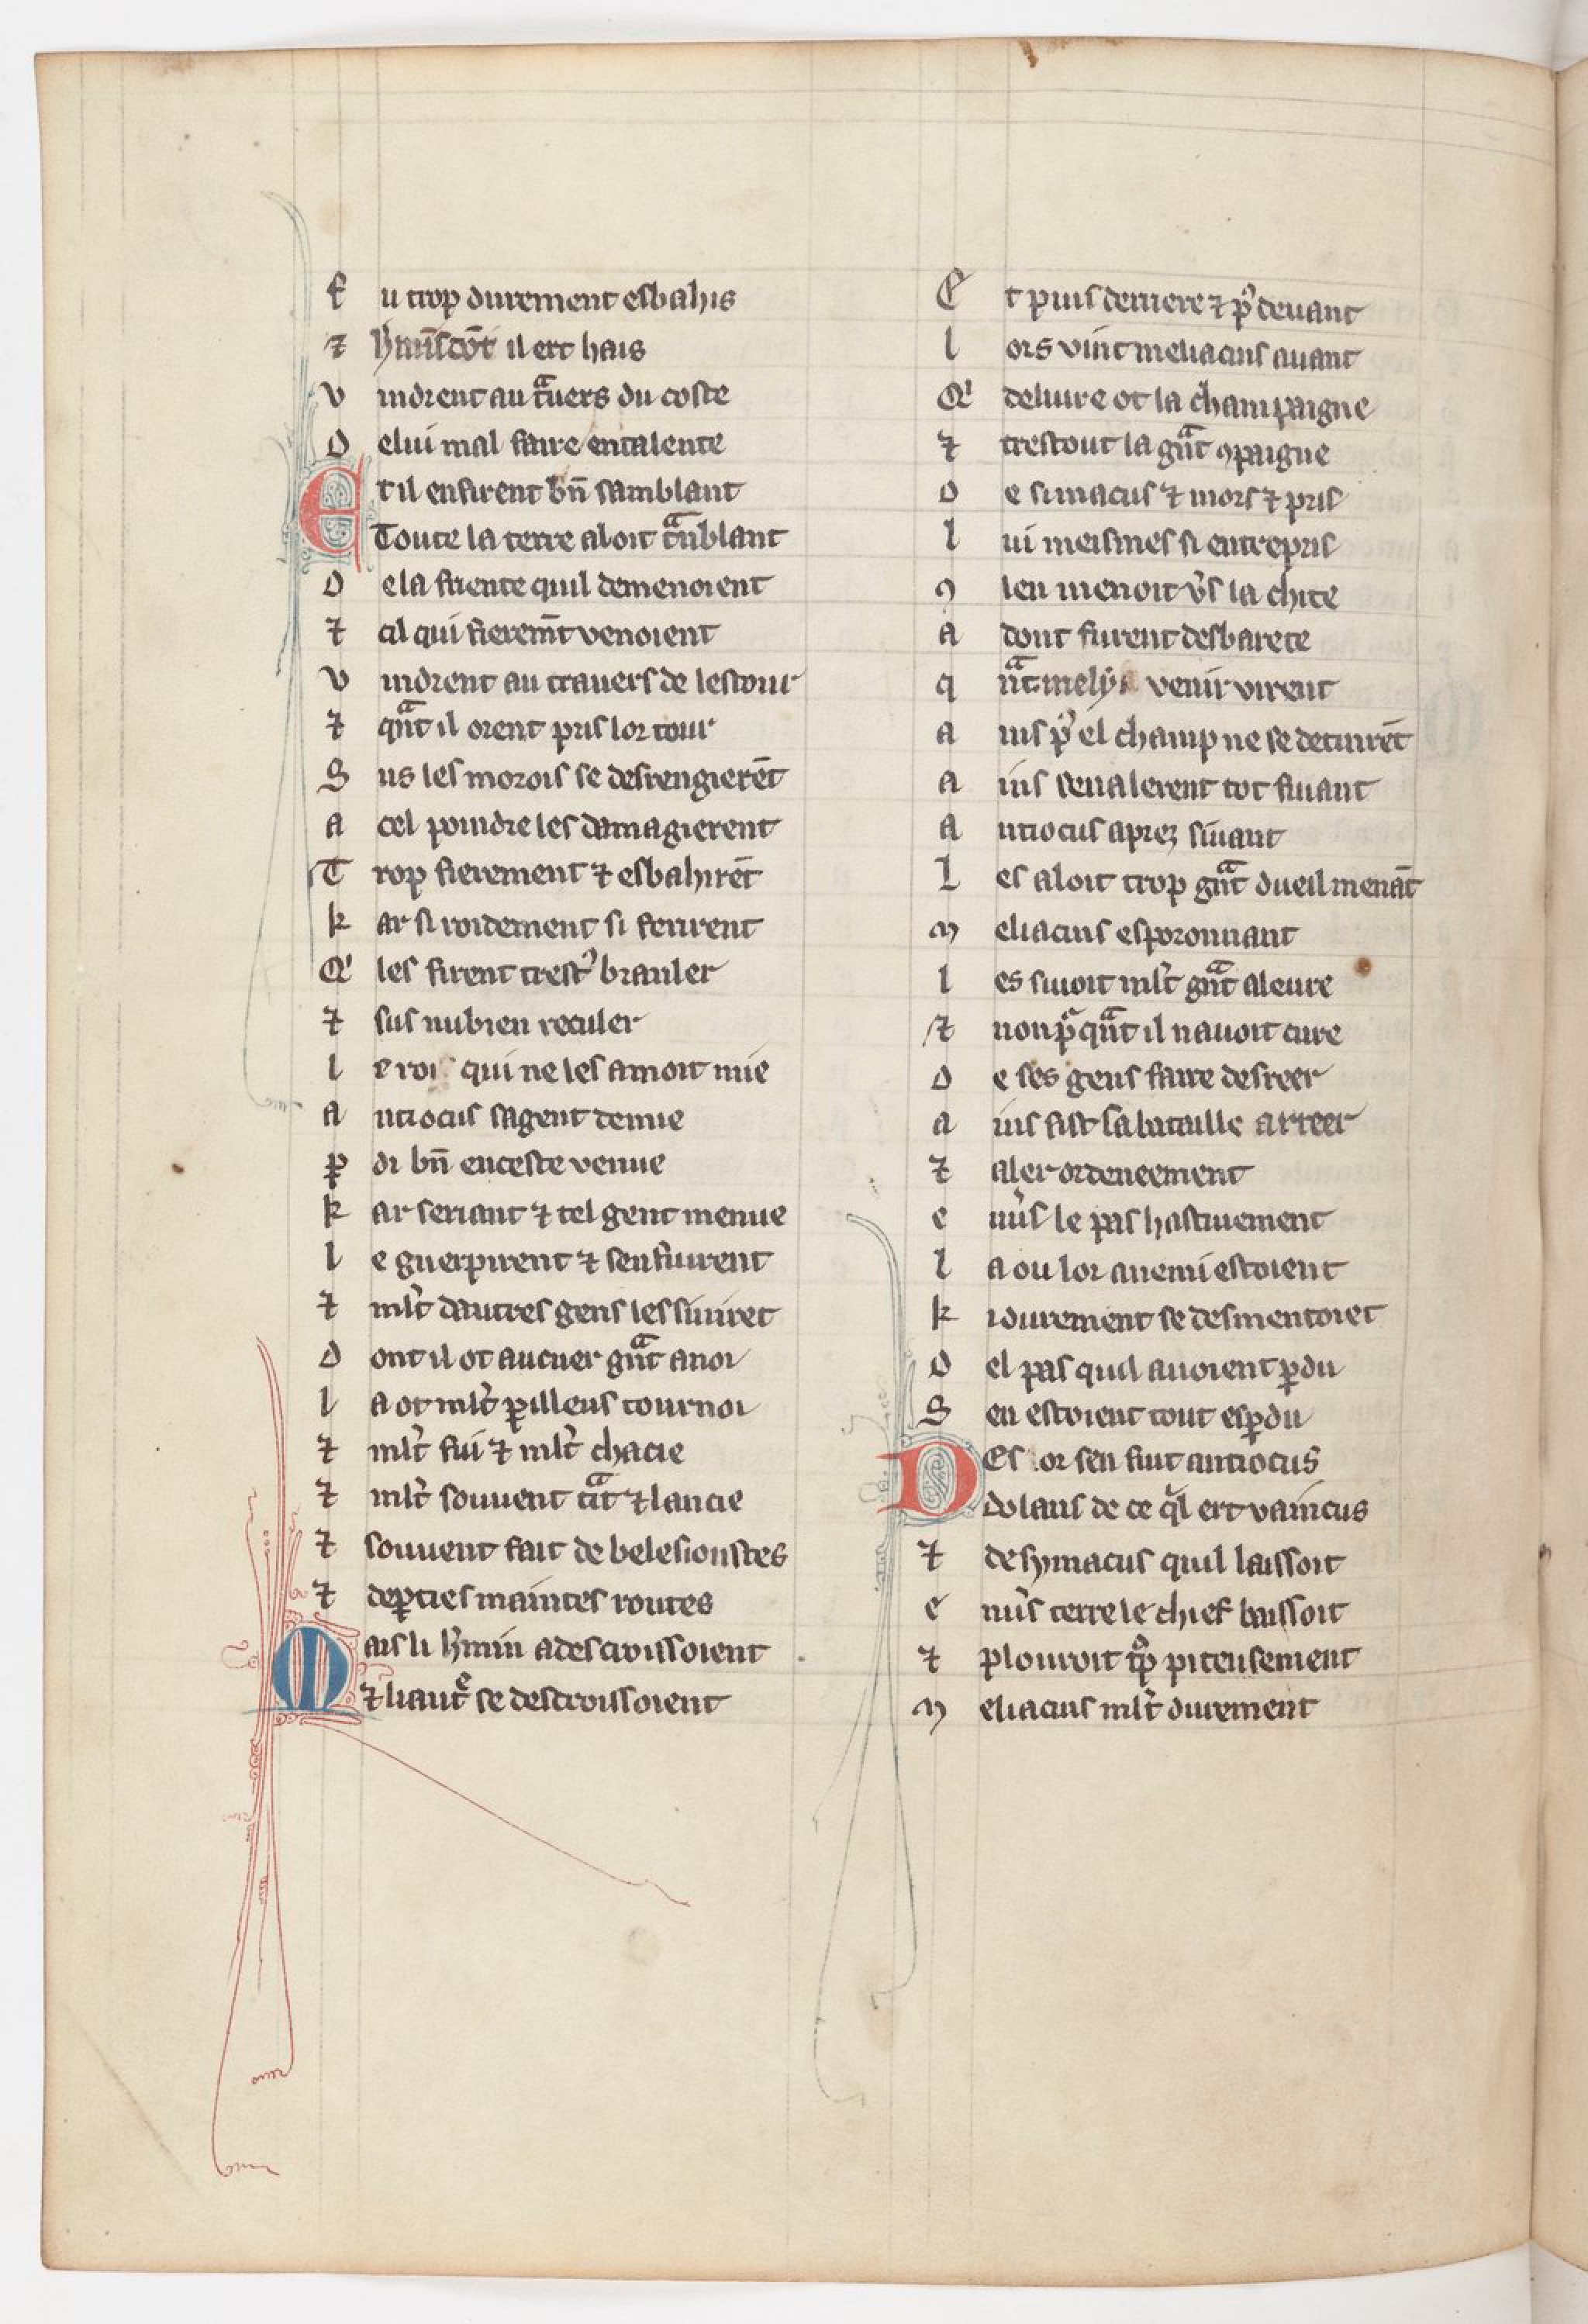 f u trop durement esbahis
⁊ h̾mins dōt il ert hais
v indrent au tᵃuers du coste
D e lui mal faire entalente
E t il enfirent bn̄ samblant
Toute la terre aloit tᵃnblant
D e la friente quil demenoient
⁊ cil qui fieremt̄ venoient
v indrent au trauers de lestour
⁊ qᵃnt il orent pris lor tour
S us les morois se desrengierēt
a cel poindre les damagierent
T rop fierement ⁊ esbahirēt
k ar si roidement si ferirent
Qꝰ les firent trestꝰ branler
⁊ sus nubien reculer
l e roi qui ne les amoit mie
a ntiocus sa gent demie
ꝑ di bn̄ en ceste venue
k ar seriant ⁊ tel gent menue
l e guerpirent ⁊ sen fuirent
⁊ ml̾t dautres gens les siuiret
D ont il ot au cuer gᵃnt anoi
l a ot ml̾t ꝑilleus tournoi
⁊ ml̾t fui ⁊ ml̾t chacie
⁊ ml̾t souuent tᵃit ⁊ lancie
⁊ souuent fait de beles ioustes
⁊ deꝑties maintes routes
M ais li h̾min ades croissoient
⁊ li autᵉ se destroissoient
E t puis derriere ⁊ pꝰ deuant
l ors vint meliacins auant
Qꝰ deliure ot la champaigne
⁊ trestout la gᵃnt ꝯpaigne
D e simacus ⁊ mors ⁊ pris
l ui meismes si entrepris
ꝯ len menoit v̾s la chite
a dont furent desbarete
q nᵃt mely venir virent
a ins pꝰ el champ ne se detinrēt
a ins sen alerent tot fuiant
a ntiocus aprez siuant
L es aloit trop gᵃnt dueil menāt
m eliacins esporonnant
l es siuoit ml̾t gᵃnt aleure
⁊ non pᵒ qᵃnt il nauoit cure
D e ses gens faire desreer
a ins fist sa bataille arreer
⁊ aler ordeneement
e nu̾s le pas hastiuement
l a ou lor anemi estoient
k i durement se desmentoiet
D el pas quil auoient ꝑdu
S en estoient tout esꝑdu
D es or sen fuit antiocus
dolans de ce qⁱl ert vaincus
⁊ de symacus quil laissoit
e nu̾s terre le chief baissoit
⁊ plouroit tᵒp piteusement
m eliacins ml̾t durement